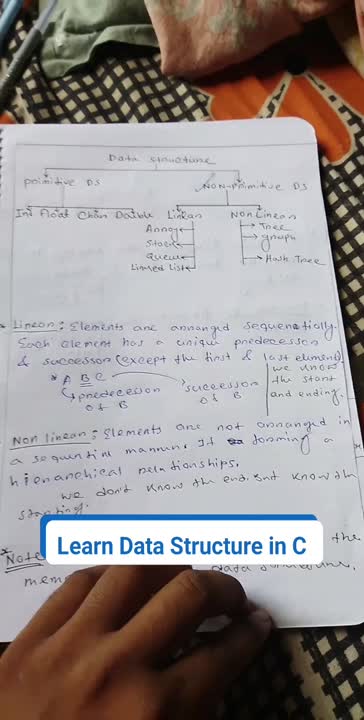 Data structure
primitive DS
NON-primitive DS
Int Float Char Double
Linear
NonLinear
Array
Stack
Queue
Linked List
Tree
graph
Hash Tree
Linear: Elements are arranged sequentially.
Each element has a unique predecessor
& successor (except the first & last element)
A B C
predecessor of B
successor of B
we know
the start
and ending.
Non linear: Elements are not arranged in
a sequential manner. It forming a
hierarchical relationships.
we don't know the end isn't know the
starting.
Note
the
Learn Data Structure in C
data structure.